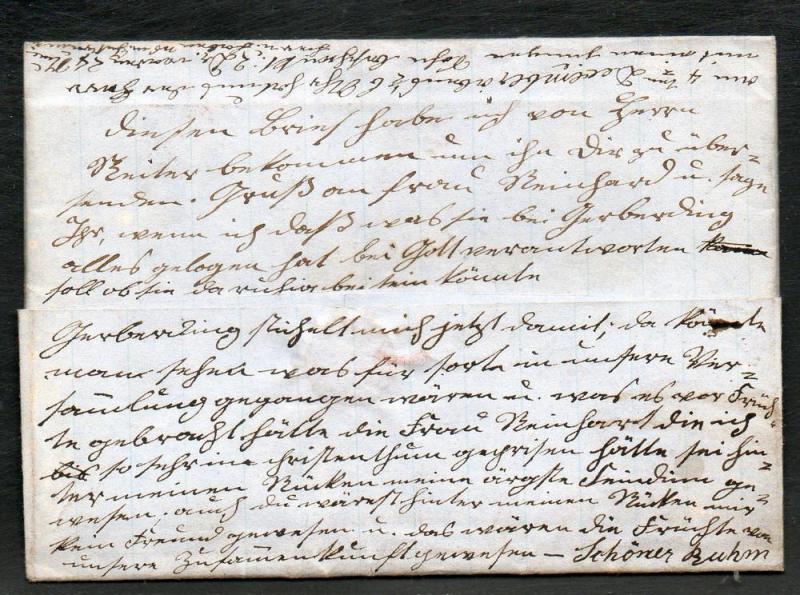 diesen Brief habe ich von Herrn
Reiter bekommen um ihn Dir zu über-
senden. Gruß an Frau Reinhard u. sage
Ihr, wenn ich daß was sie bei Gerberding
alles gelogen hat bei Gott verantworten
soll ob sie da ruhig bei sein könnte
Gerberding stichelt mich jetzt damit; da könnte
man sehen was für sorte in unsere Ver-
sammlung gegangen wären u. was es vor Früch-
te gebracht hätte die Frau Reinhart die ich
so sehr im christenthum geprisen hätte sei hin-
ter meinen Rücken meine ärgste Feindinn ge-
wesen; auch du wärest hinter meinen Rücken mir
kein Freund gewesen u. das wären die Früchte von
unsere Zusammenkunft gewesen — Schöner Ruhm